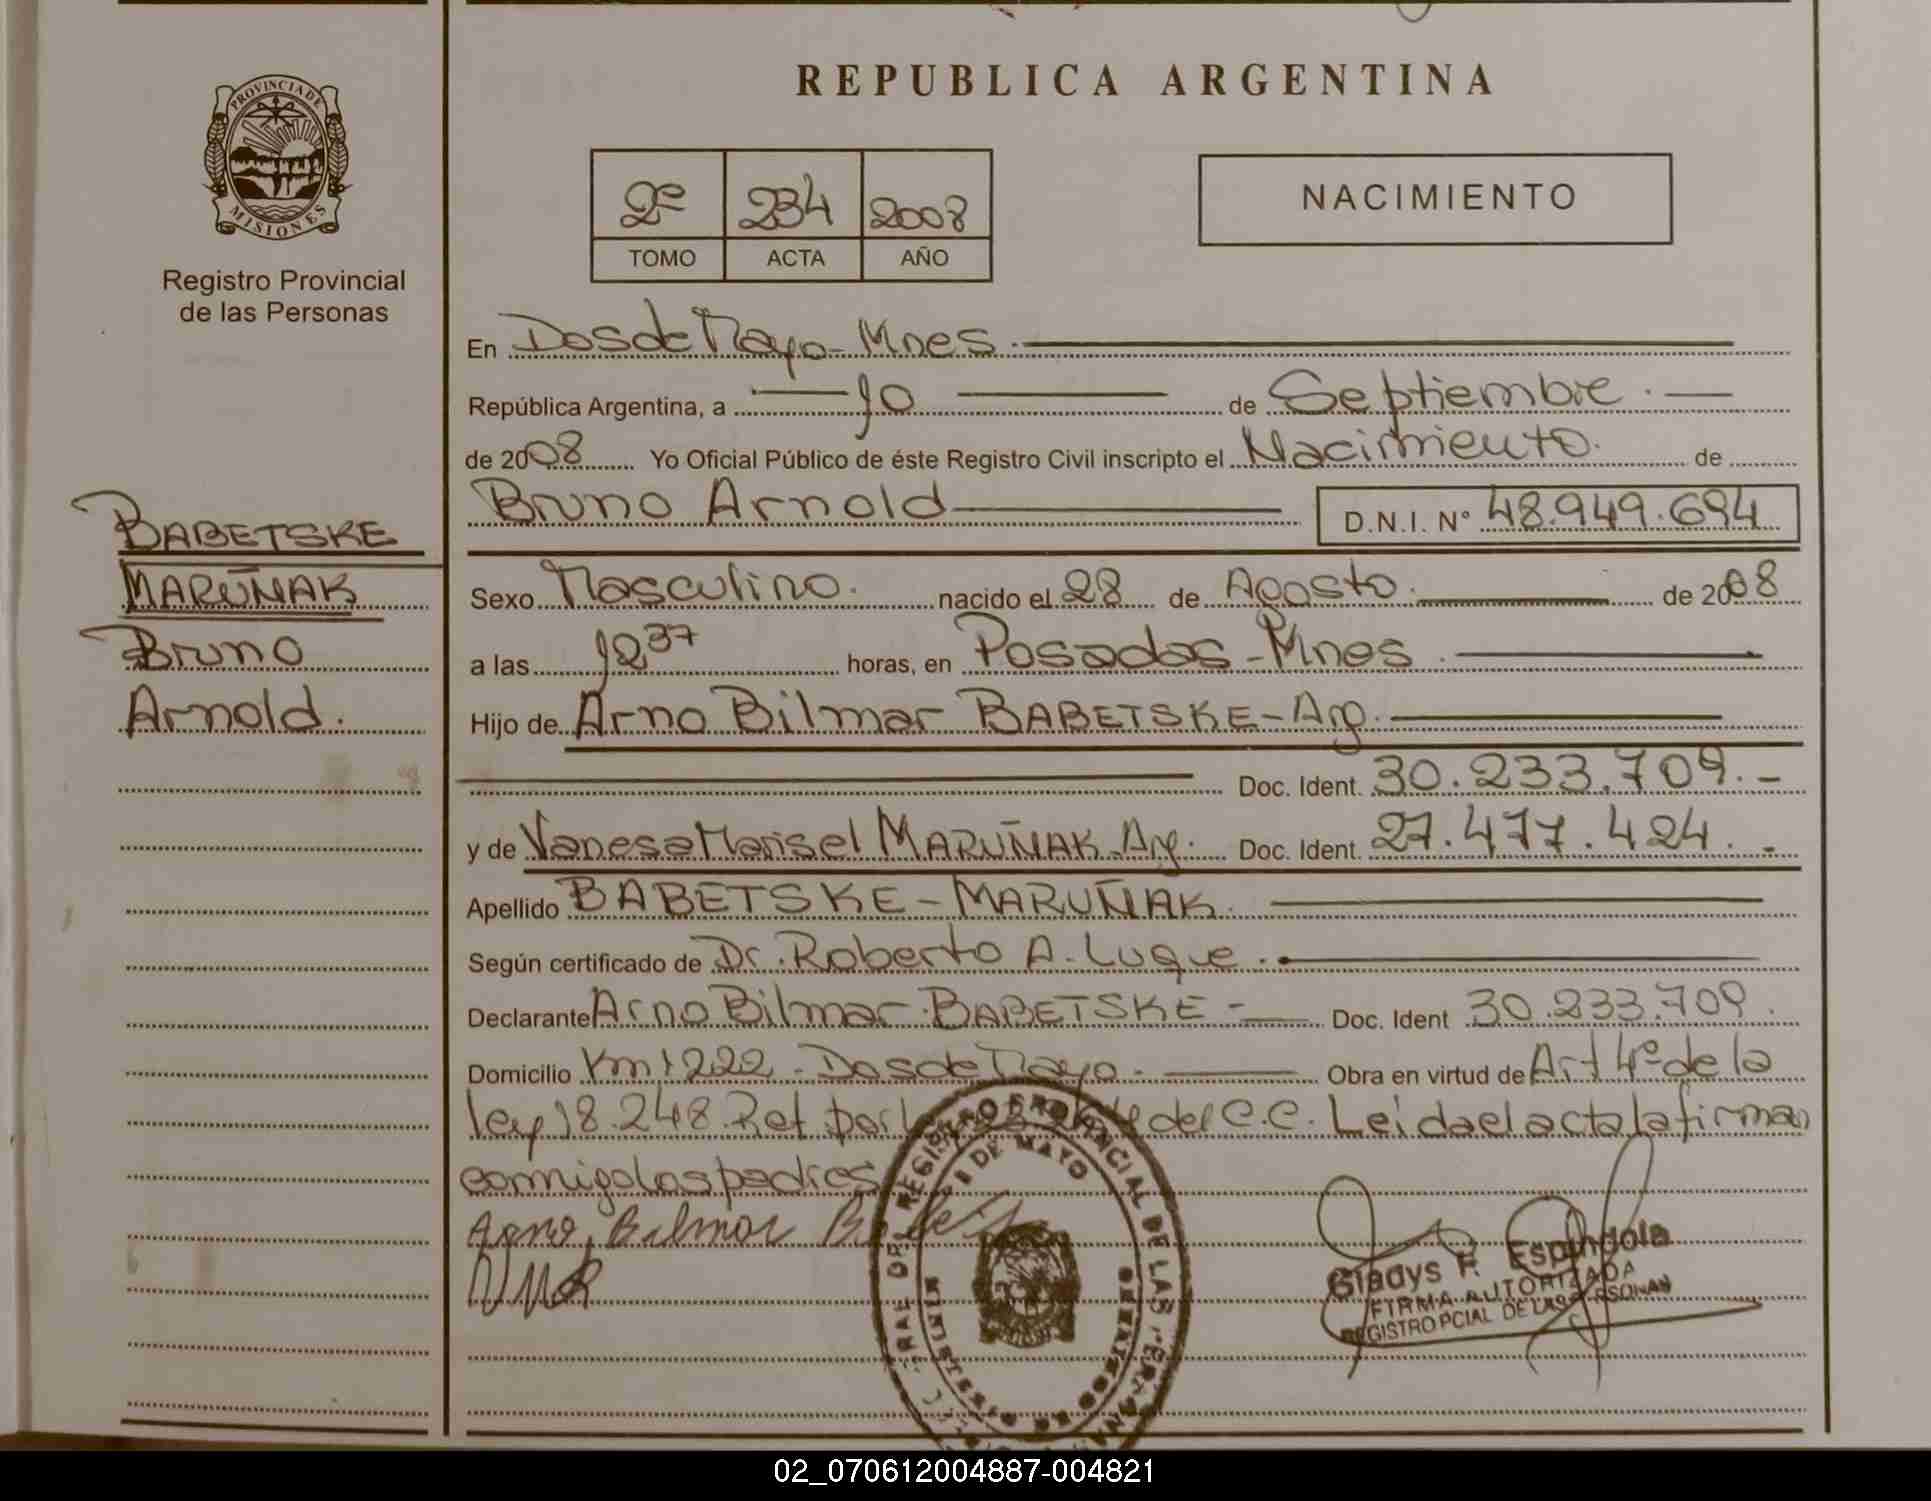 REPUBLICA ARGENTINA
PROVINCIA DE
MISIONES
Registro Provincial
de las Personas
2º 234 2008
TOMO ACTA AÑO
NACIMIENTO
En Dos de Mayo - Mnes
República Argentina, a 10 de Septiembre
de 2008 Yo Oficial Público de éste Registro Civil inscripto el Nacimiento de
Bruno Arnold D.N.I. Nº 48.949.694
BABETSKE
MARUÑAK
Bruno
Arnold.
Sexo Masculino. nacido el 28 de Agosto. de 2008
a las 12 37 horas, en Posadas - Mnes
Hijo de Arno Bilmar BABETSKE - Arg.
Doc. Ident. 30.233.709.-
y de Vanesa Marisel MARUÑAK - Arg. Doc. Ident. 27.477.424.-
Apellido BABETSKE - MARUÑAK.
Según certificado de Dr. Roberto A. Luque.
Declarante Arno Bilmar BABETSKE - Doc. Ident 30.233.709.
Domicilio Km 1222 - Dos de Mayo. Obra en virtud de Art 4º de la
ley 18.248 Ref. por del C.C. Leida el acta la firman
conmigo los padres
Arno Bilmar
REGISTRO PROVINCIAL DE LAS
DE MAYO
MINISTERIO DE GOBIERNO
Gladys F. Espindola
FIRMA AUTORIZADA
REGISTRO PCIAL DE LAS PERSONAS
02_070612004887-004821